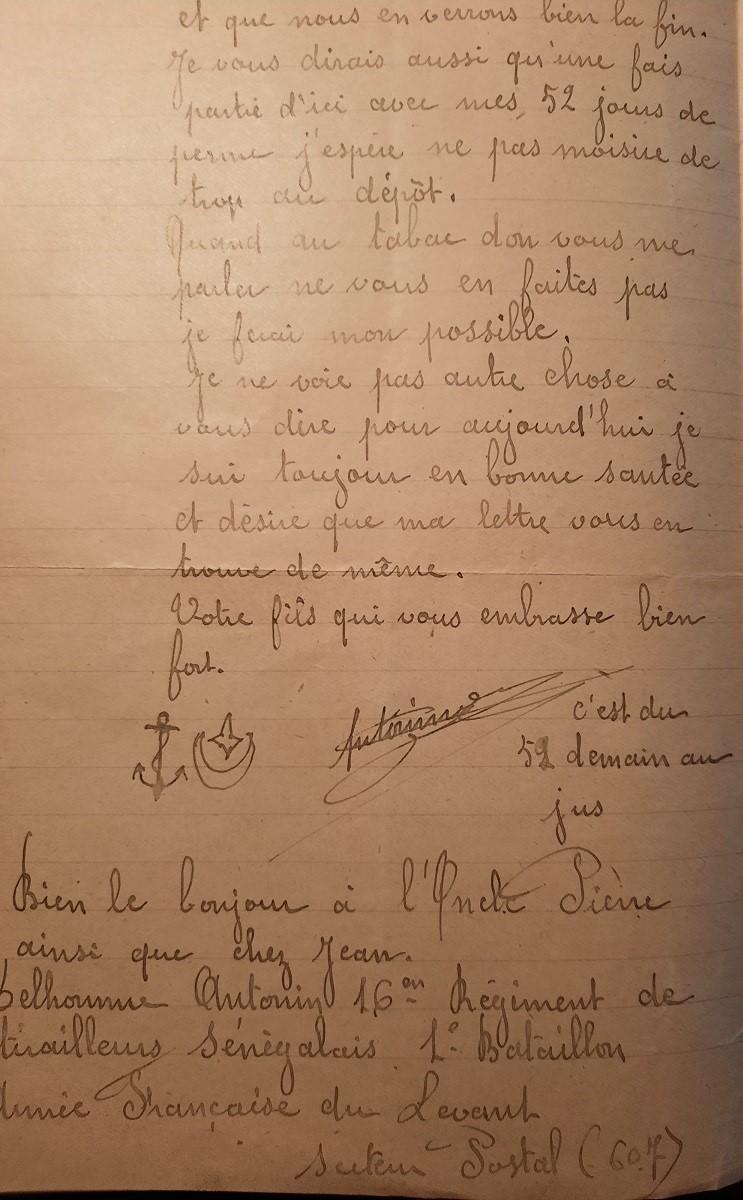 et que nous en verrons bien la fin.
Je vous dirais aussi qu'une fais
partie d'ici avec mes 52 jours de
perme j'espère ne pas moisire de
trop au dépôt.
Quand au tabac don vous me
parler ne vous en faites pas
je ferai mon possible.
Je ne voie pas autre chose à
vous dire pour aujourd'hui je
sui toujour en bonne santée
et désire que ma lettre vous en
trouve de même.
Votre fils qui vous embrasse bien
fort.
Antonin
c'est du
52 demain au
jus
Bien le bonjour à l'Oncle Pièrre
ainsi que chez Jean.
Delhoumme Antonin 16em Régiment de
tirailleurs Sénégalais 1e Bataillon
Armée Française du Levant
Secteur Postal (607)